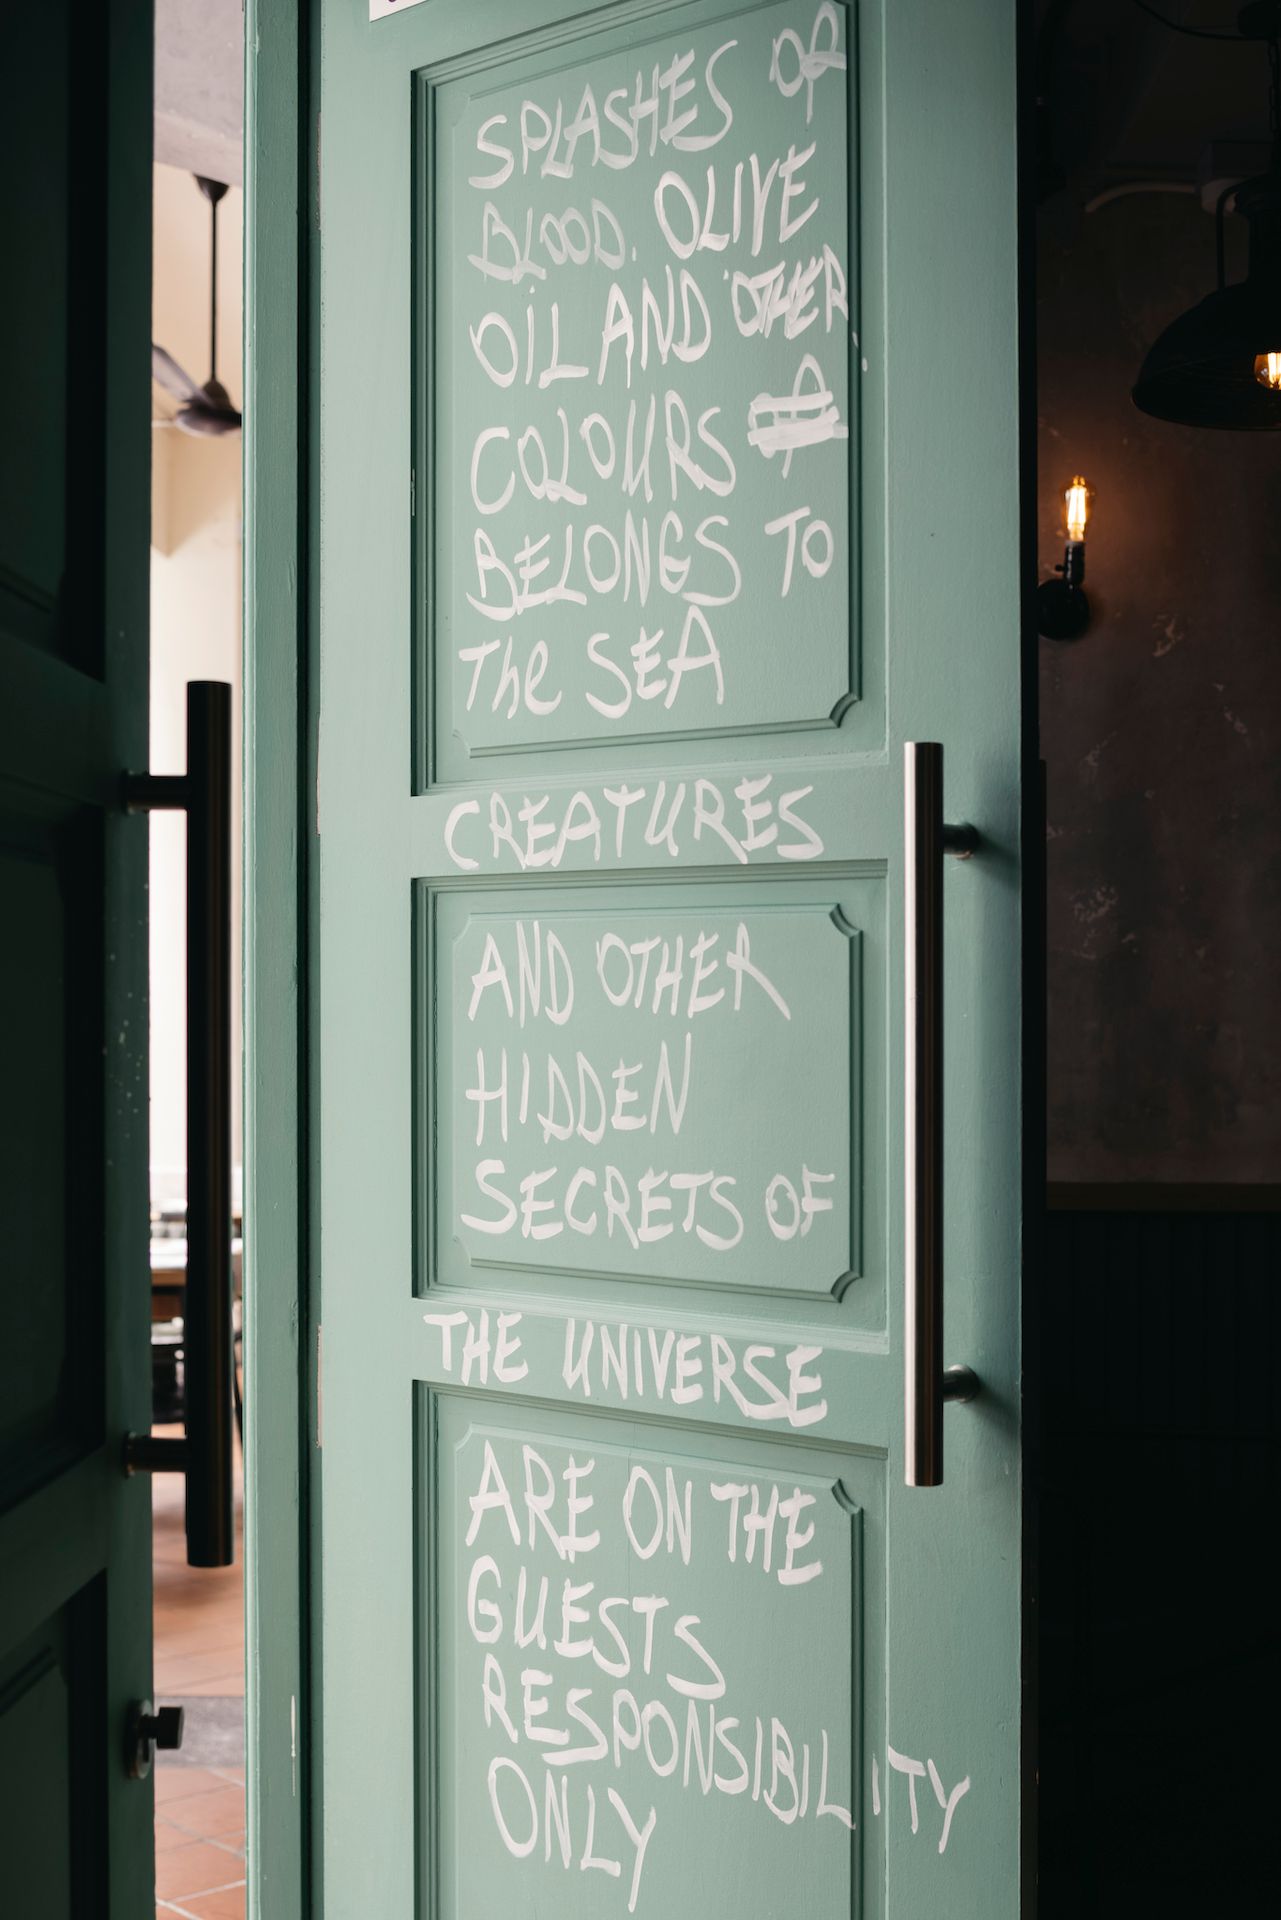 SPLASHES OF
BLOOD. OLIVE
OIL AND OTHER
COLOURS
BELONGS TO
The SEA
CREATURES
AND OTHER
HIDDEN
SECRETS OF
THE UNIVERSE
ARE ON THE
GUESTS
RESPONSIBILITY
ONLY